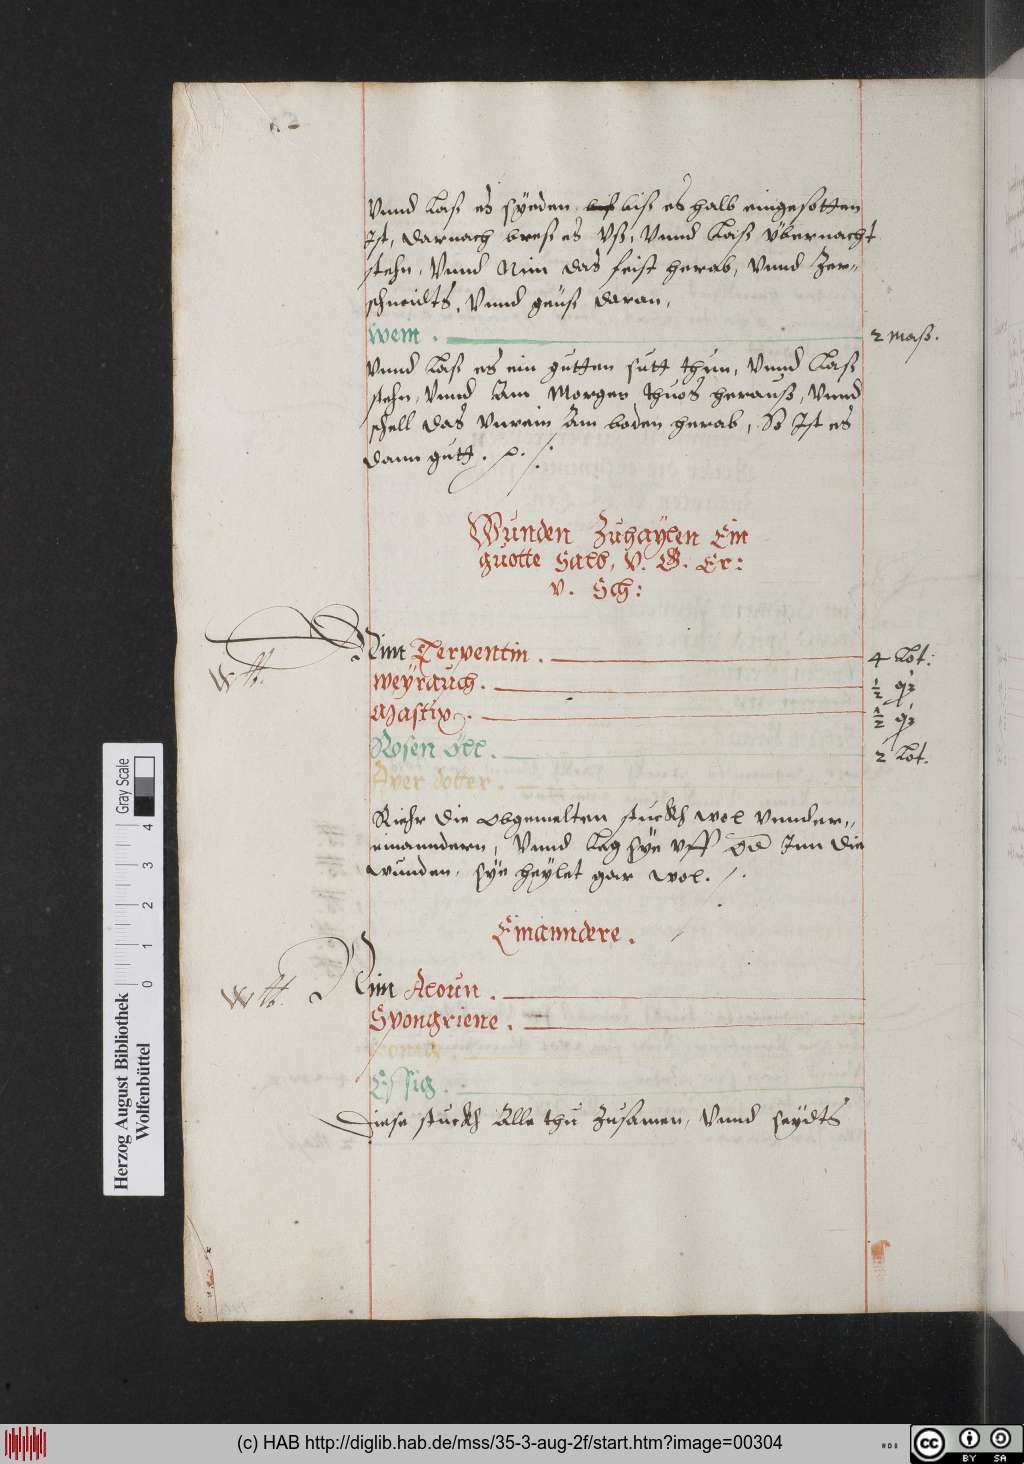 Vnnd Laß es syeden biß es halb eingesotten
Ist, darnach breß es vß, Vnnd Laß übernacht
stehn, Vnnd Nim das feist herab, Vnnd Zer„
schneidts, Vnnd geüß daran,
Wein . 2 Maß.
Vnnd Laß es ein gutten sutt thun, Vnnd Laß
stehn, Vnnd Am Morgen thuos herauß, Vnnd
schell das Vnrein Am boden herab, So Ist es
dann gutt.
Wunden Zuhaylen Ein
guotte Salb, V. G. Er:
v. Sch:
Nim Terpentin . 4 Lot:
W
Weÿrauch . ½
Mastix . ½
Rosen Öll . 2 Lot.
Ayer dotter .
Riehr die Obgemelten stuckh wol Vnnder„
einanndern, Vnnd Leg sye vff Inn die
wunden, sye heylet gar wol.
Ein anndere .
Nim Aloun .
W
Spongriene .
Essig .
Diese stuckh Alle thu Zusamen, Vnnd seydts
Gray Scale
4 3 2 1 0
Herzog August Bibliothek
Wolfenbüttel
(c) HAB http://diglib.hab.de/mss/35-3-aug-2f/start.htm?image=00304
cc BY SA